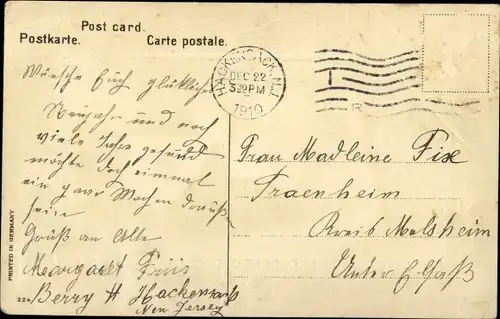 Post card.
Postkarte. Carte postale.
HACKENSACK, N.J.
DEC 22
3 30 PM
1910
Wünsche Euch glückliches
Neujahr und noch
viele Jahre gesund
möchte doch einmal
ein paar Wochen drauß
sein
Gruß an Alle
Margaret Friis
Berry St Hackensack
New Jersey
Frau Madleine Fix
Traenheim
Kreis Molsheim
Unter Elsaß
PRINTED IN GERMANY